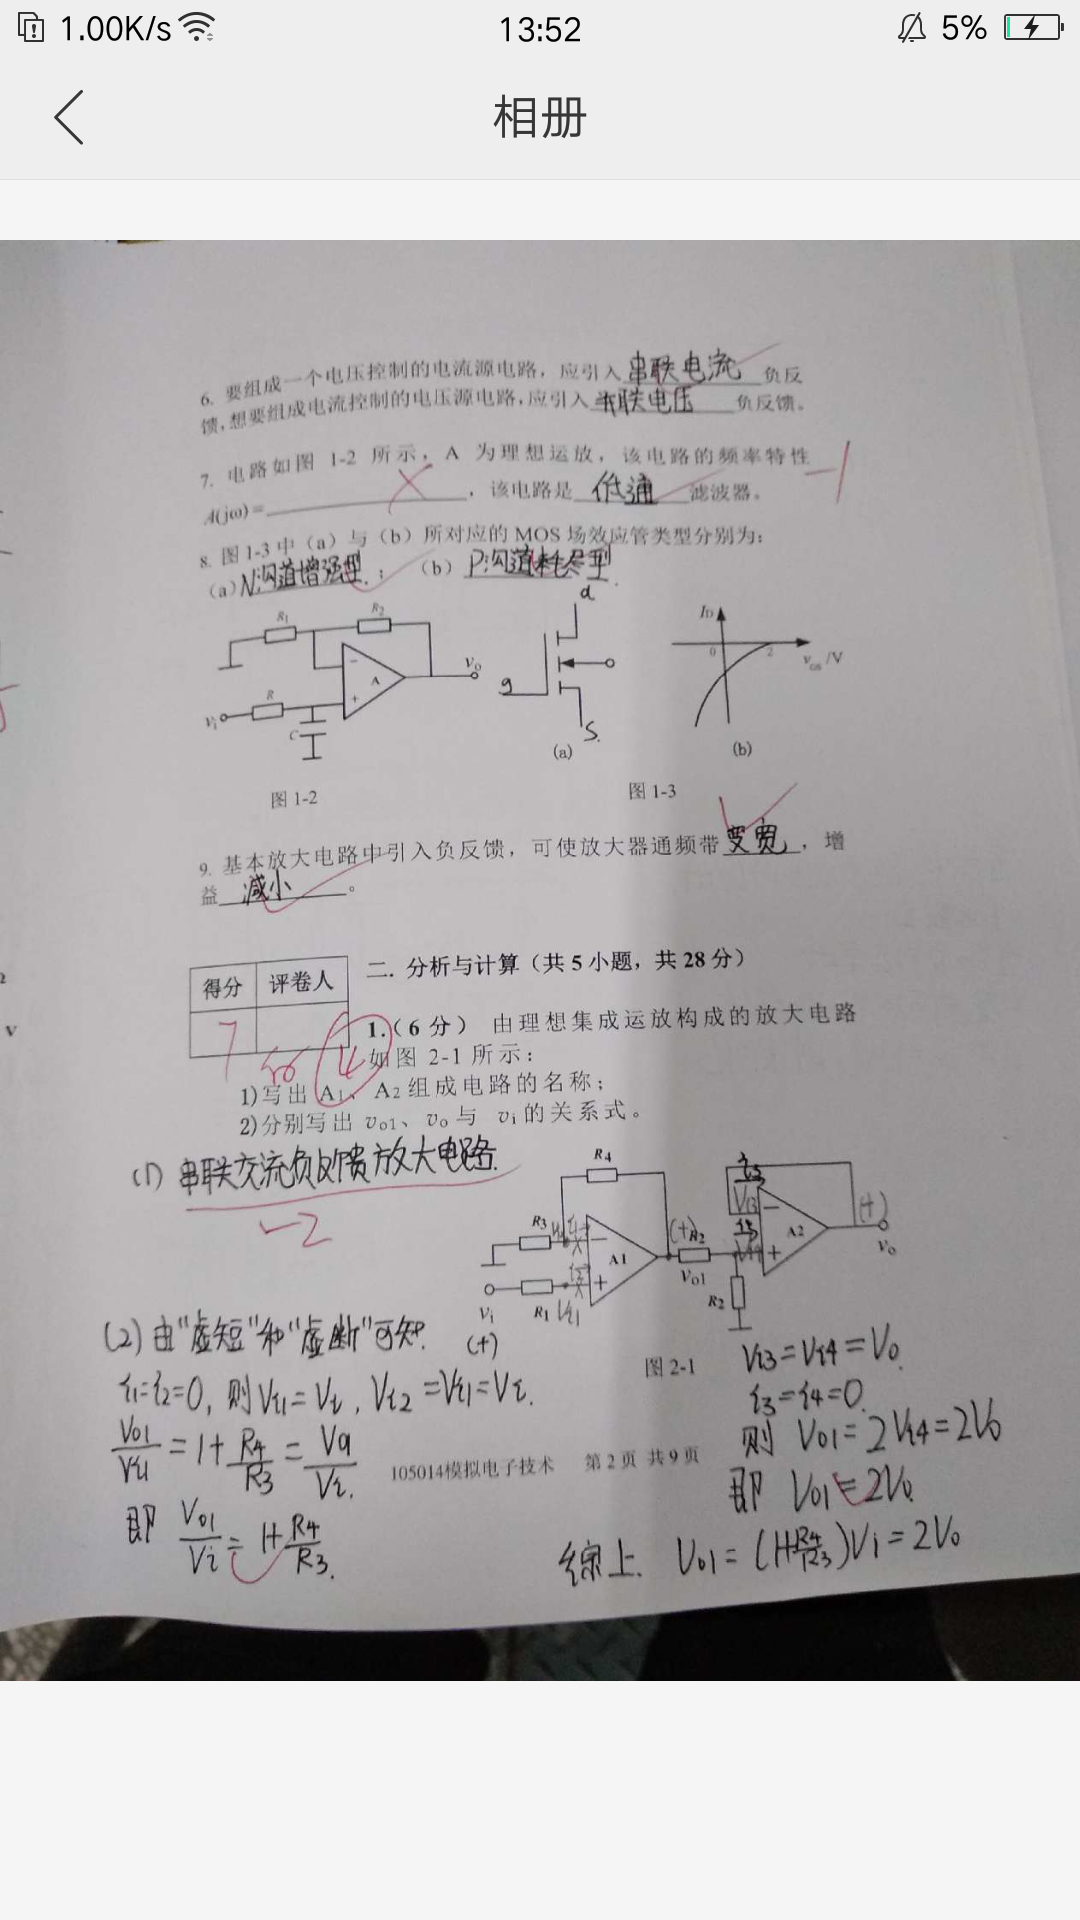 1.00K/s
13:52
5%
相册
6. 要组成一个电压控制的电流源电路，应引入 串联电流 负反
馈,想要组成电流控制的电压源电路,应引入 并联电压 负反馈。
7. 电路如图 1-2 所示，A 为理想运放，该电路的频率特性
-1
A(jω)= ，该电路是 低通 滤波器。
8. 图1-3 中（a）与（b）所对应的 MOS 场效应管类型分别为:
(a) N沟道增强型 ; (b) P沟道耗尽型 .
R1
R2
A
-
+
R
C
vi
Vo
d
g
S.
(a)
ID
0
2
vGS /V
(b)
图 1-2
图 1-3
9. 基本放大电路中引入负反馈，可使放大器通频带 变宽 ，增
益 减小 。
得分 评卷人
7
二. 分析与计算（共 5 小题，共 28 分）
4
1.（6 分） 由理想集成运放构成的放大电路
如图 2-1 所示:
1)写出 A1、A2 组成电路的名称;
2)分别写出 vo1、vo 与 vi 的关系式。
(1) 串联交流负反馈放大电路.
-2
R4
R3
A1
-
+
R1
Vi
(+)
(+)
R2
Vo1
R2
A2
-
+
(+)
Vo
图 2-1
(2) 由"虚短"和"虚断"可知.
i1=i2=0, 则Vi1=Vi, Vi2=Vi1=Vi.
Vo1/Vi1 = 1+R4/R3 = Vo1/Vi.
即 Vo1/Vi = 1+R4/R3.
Vi3=Vi4=Vo.
i3=i4=0.
则 Vo1=2Vi4=2Vo
即 Vo1=2Vo.
105014模拟电子技术 第 2 页 共 9 页
综上. Vo1=(1+R4/R3)Vi=2Vo